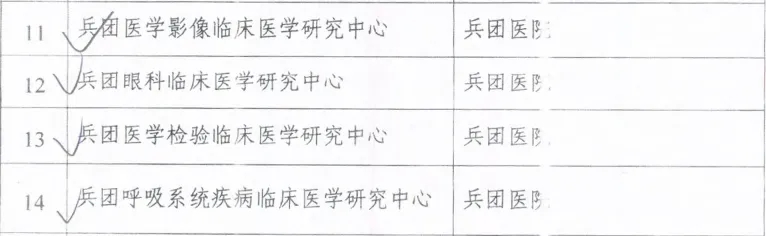 11 兵团医学影像临床医学研究中心 兵团医院
12 兵团眼科临床医学研究中心 兵团医院
13 兵团医学检验临床医学研究中心 兵团医院
14 兵团呼吸系统疾病临床医学研究中心 兵团医院